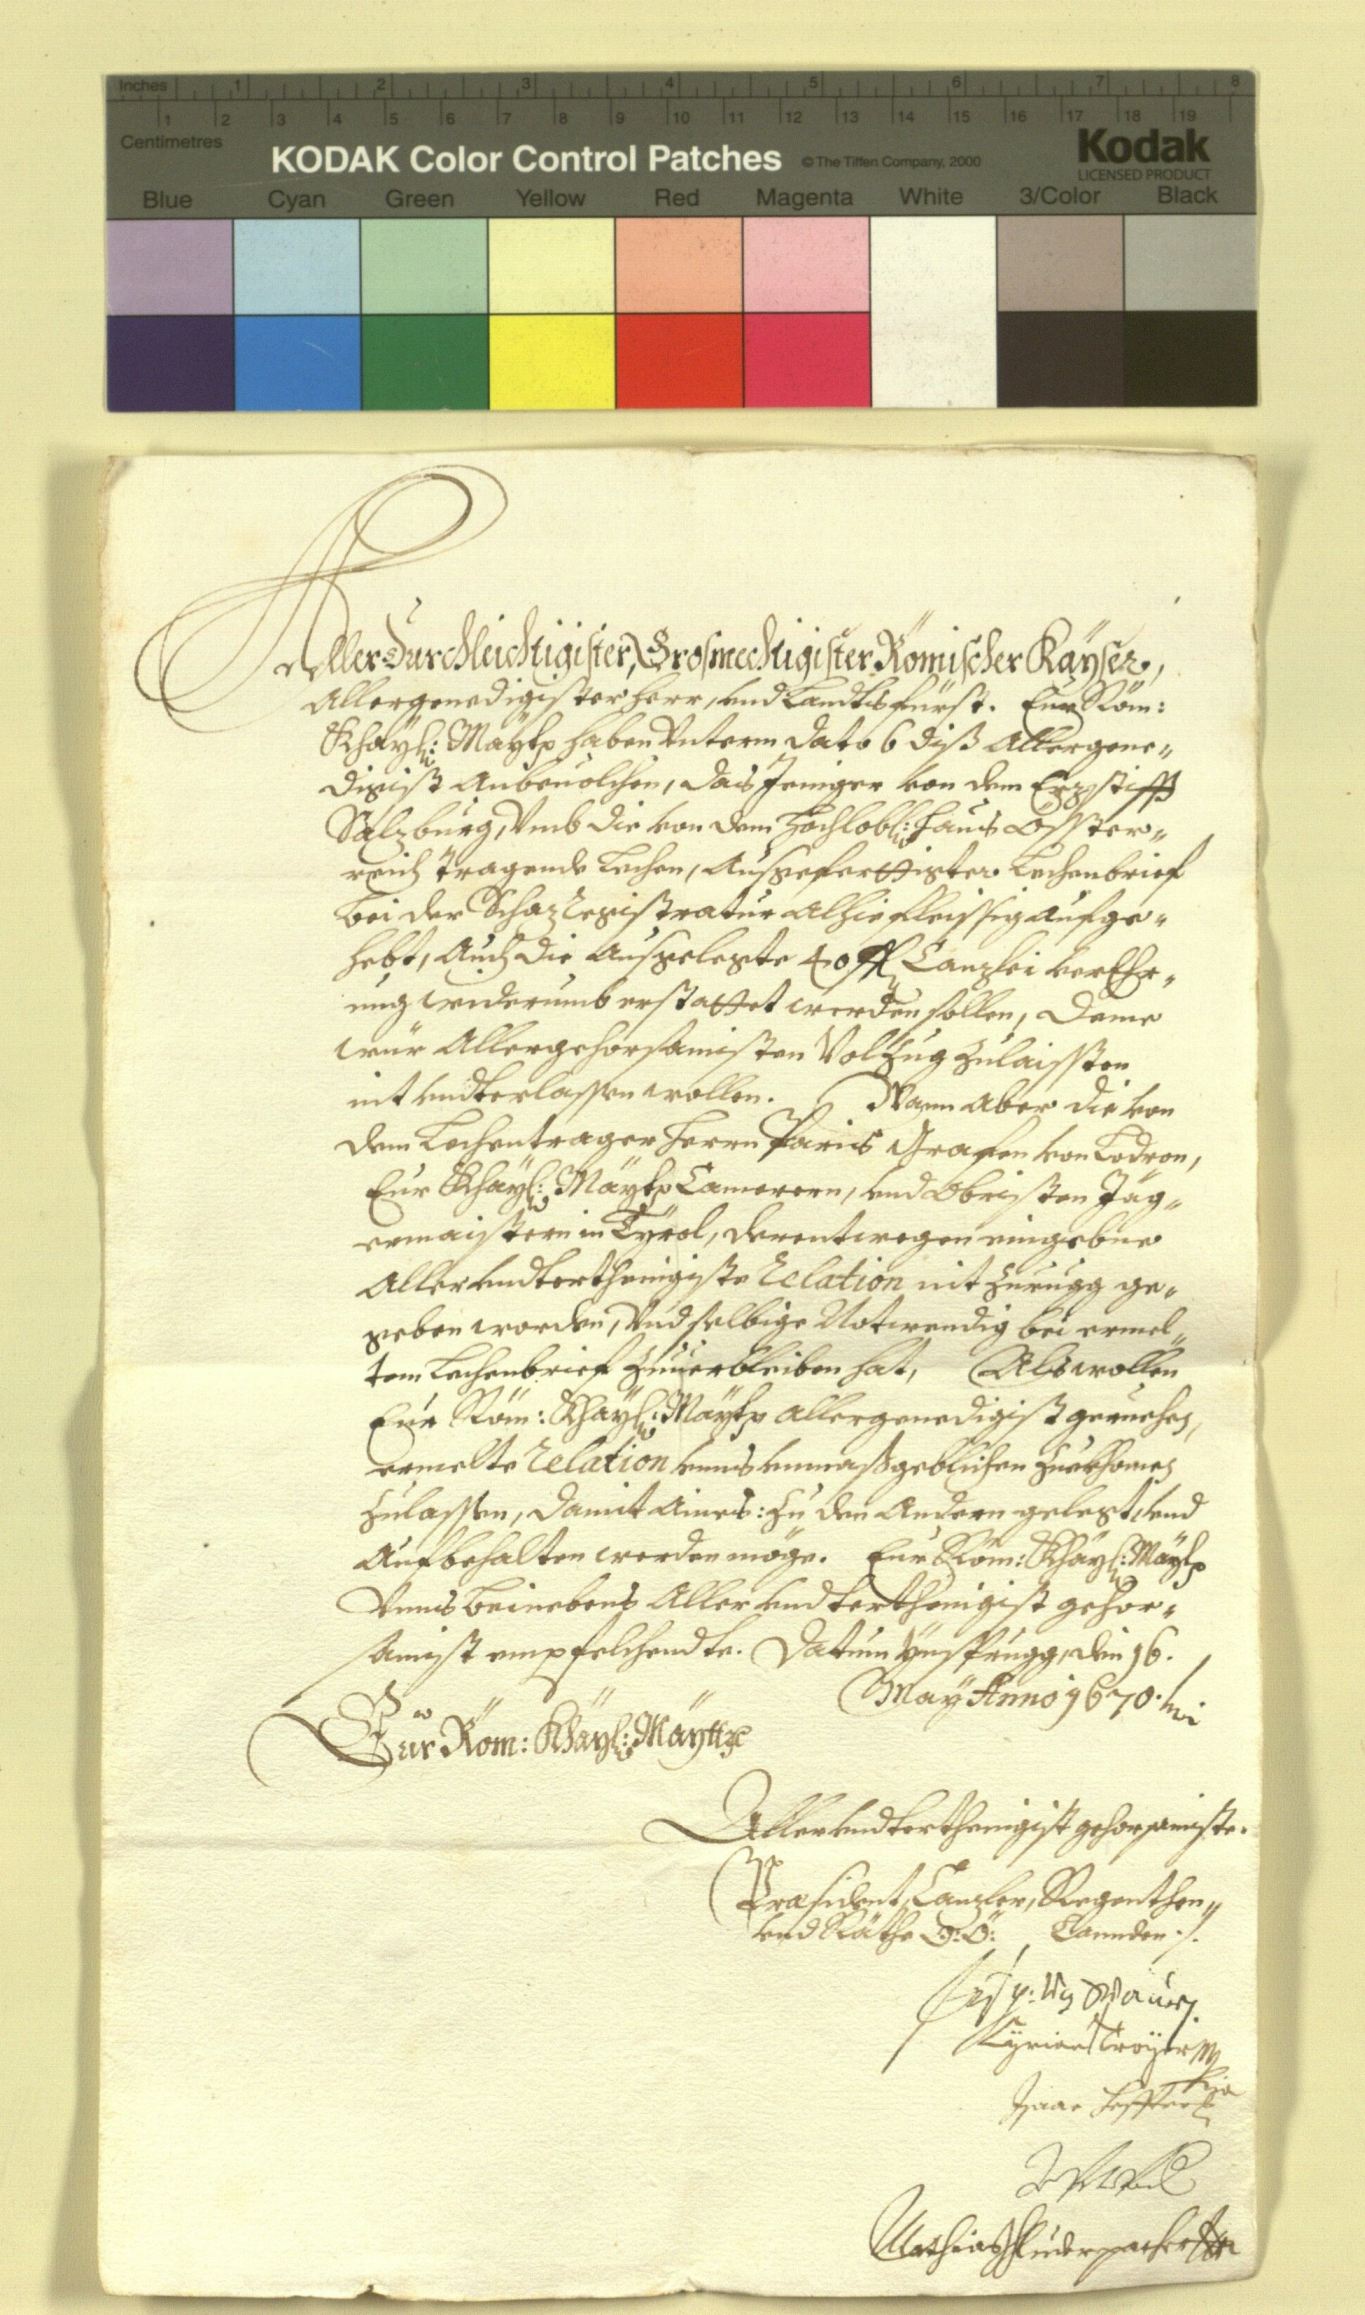 Inches 1 2 3 4 5 6 7 8
1 2 3 4 5 6 7 8 9 10 11 12 13 14 15 16 17 18 19
Centimetres
KODAK Color Control Patches © The Tiffen Company, 2000 Kodak
LICENSED PRODUCT
Blue Cyan Green Yellow Red Magenta White 3/Color Black
Allerdurchleichtigister, Grosmechtigister Römischer Kaÿser,
Allergenedigister Herr, und Landtsfürst. Eur Röm:
Khaÿl: Maÿtt haben Unterm dato 6 diß Allergene„
digist Anbeuolchen, das Jeniger von dem Erzstifft
Salzburg, Vmb die von dem Hochlobl: Haus Össter„
reich tragende Lechen, Ausgeferttigter Lechenbrief
bei der Schaz Registratur Alhie fleissig aufge„
hebt, Auch die Ausgelegte 40 fl Canzlei verEhr„
ung widerumb erstattet werden sollen, deme
wür Allergehorsamisten Volzug zulaissten
nit undterlassen wollen. Wann Aber die von
dem Lechentrager Herrn Paris Grafen von Lodron,
Eur Khaÿl: Maÿtt Camerern, und Obristen Jäg„
ermaistern in Tÿrol, derentwegen eingebne
Allerundterthenigiste Relation nit zurugg ge„
geben worden, Und selbige Notwendig bei ermel„
tem Lechenbrief zuuerbleiben hat, Als wollen
Eur Röm: Khaÿl: Maÿtt allergenedigist geruehen,
ermelte Relation unns unmaßgeblichen zuekhomen
zulassen, damit Aines: zu den Andern gelegt und
Aufbehalten werden möge. Eur Röm: Khaÿl: Maÿtt
Unns beinebens Allerundterthenigist gehor„
samist empfelchendte. Datum Ÿnsprugg, den 16.
Maÿ Anno 1670.
Eur Röm: Khaÿl: Maÿtt
Allerundterthenigist gehorsamiste.
Præsident, Canzler, Regenthen„
und Räthe O: Ö: Lannden
Cyrian Troÿer
Isaac
Mathias